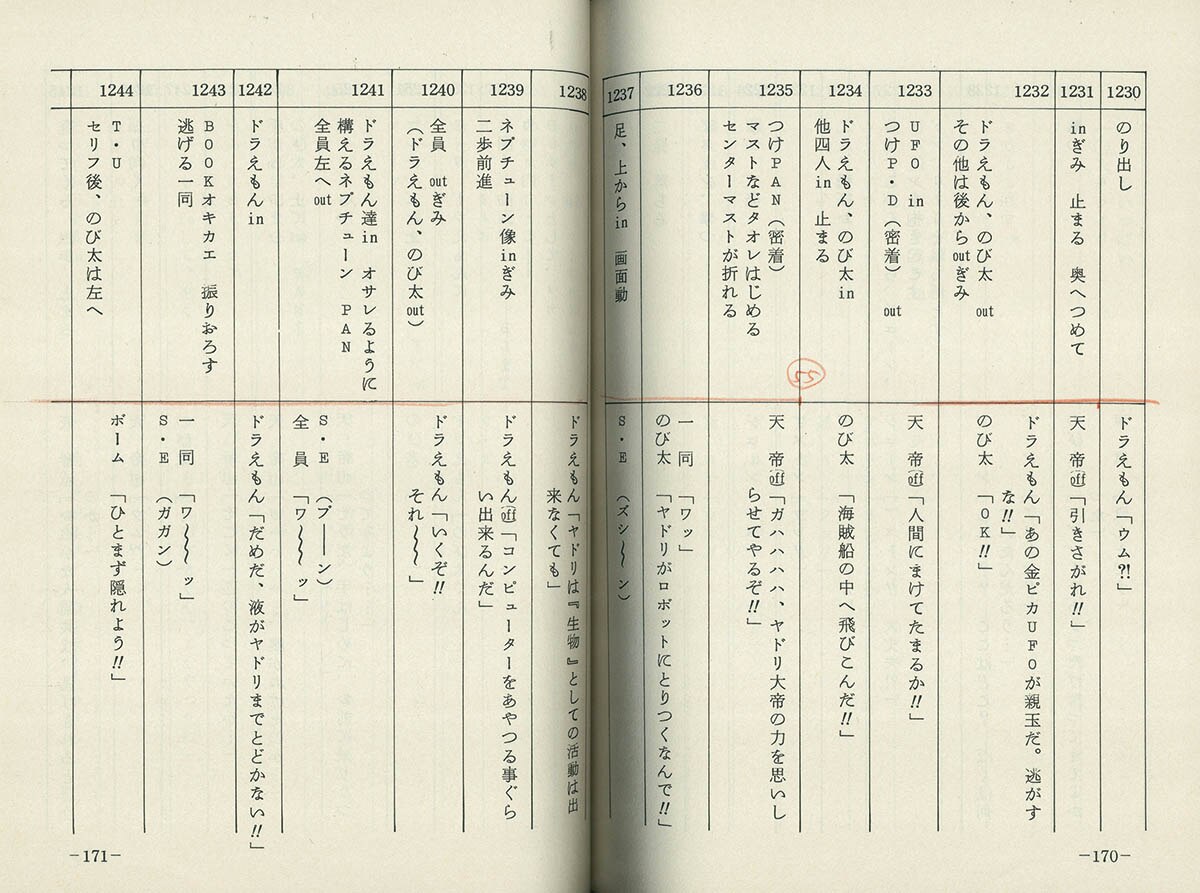 1230
のり出し
ドラえもん「ウム?!」
1231
inぎみ 止まる 奥へつめて
天 帝(off)「引きさがれ!!」
1232
ドラえもん、のび太 out
その他は後からoutぎみ
ドラえもん「あの金ピカUFOが親玉だ。逃がす
な!!」
のび太 「OK!!」
1233
UFO in
つけP・D(密着) out
天 帝(off)「人間にまけてたまるか!!」
1234
ドラえもん、のび太in
他四人in 止まる
のび太 「海賊船の中へ飛びこんだ!!」
1235
つけPAN(密着)
マストなどタオレはじめる
センターマストが折れる
55
天 帝(off)「ガハハハハ、ヤドリ大帝の力を思いし
らせてやるぞ!!」
1236
一 同 「ワッ」
のび太 「ヤドリがロボットにとりつくなんで!!」
1237
足、上からin 画面動
S・E (ズシ〜〜ン)
-170-
1238
ドラえもん「ヤドリは『生物』としての活動は出
来なくても」
1239
ネプチューン像inぎみ
二歩前進
ドラえもん(off)「コンピューターをあやつる事ぐら
い出来るんだ」
1240
全員 outぎみ
(ドラえもん、のび太out)
ドラえもん「いくぞ!!
それ〜〜」
1241
ドラえもん達in オサレるように
構えるネプチューン PAN
全員左へout
S・E (ブ――ン)
全 員 「ワ〜〜ッ」
1242
ドラえもんin
ドラえもん「だめだ、液がヤドリまでとどかない!!」
1243
BOOKオキカエ 振りおろす
逃げる一同
一 同 「ワ〜〜ッ」
S・E (ガガン)
1244
T・U
セリフ後、のび太は左へ
ボーム 「ひとまず隠れよう!!」
-171-